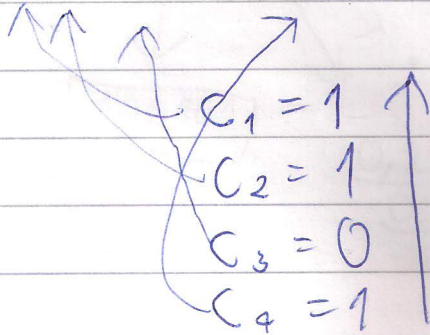 C₁ = 1
C₂ = 1
C₃ = 0
C₄ = 1